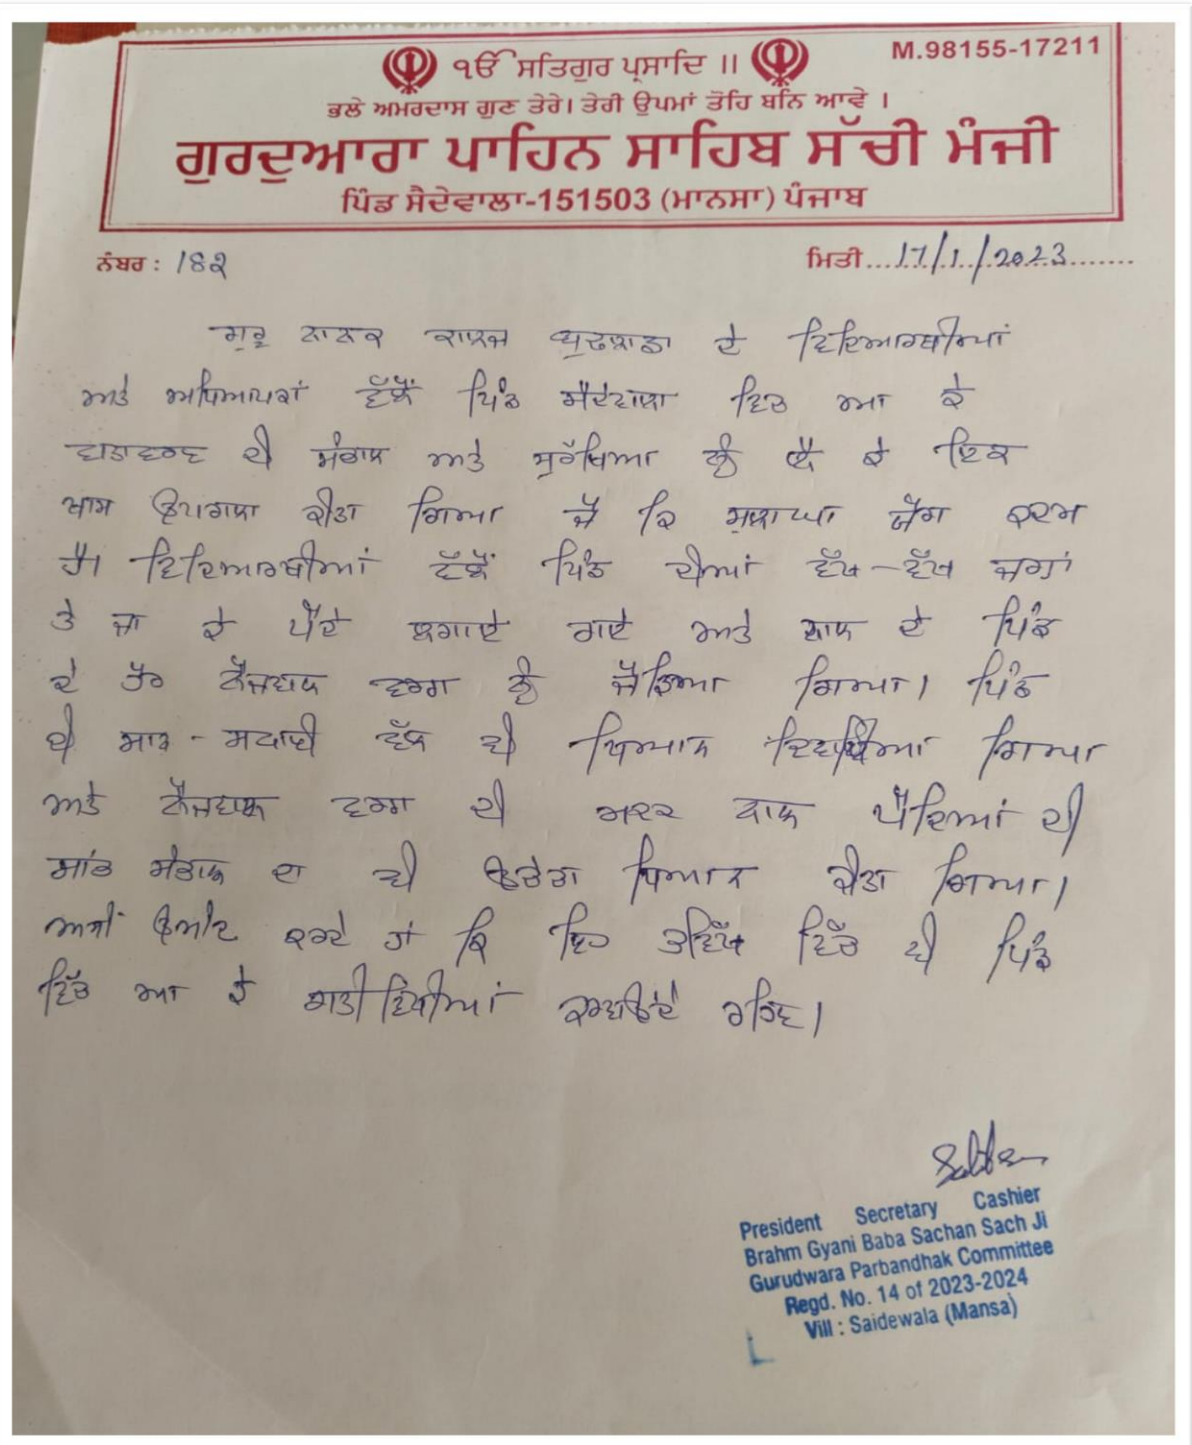 ੴ ਸਤਿਗੁਰ ਪ੍ਰਸਾਦਿ ॥
M.98155-17211
ਭਲੇ ਅਮਰਦਾਸ ਗੁਣ ਤੇਰੇ। ਤੇਰੀ ਉਪਮਾਂ ਤੋਹਿ ਬਨਿ ਆਵੇ ।
ਗੁਰਦੁਆਰਾ ਪਾਹਿਨ ਸਾਹਿਬ ਸੱਚੀ ਮੰਜੀ
ਪਿੰਡ ਸੈਦੇਵਾਲਾ-151503 (ਮਾਨਸਾ) ਪੰਜਾਬ
ਨੰਬਰ : 182
ਮਿਤੀ...17/1/2023.......
ਗੁਰੂ ਨਾਨਕ ਕਾਲਜ ਬੁਢਲਾਡਾ ਦੇ ਵਿਦਿਆਰਥੀਆਂ
ਅਤੇ ਅਧਿਆਪਕਾਂ ਵੱਲੋਂ ਪਿੰਡ ਸੈਦੇਵਾਲਾ ਵਿਚ ਆ ਕੇ
ਵਾਤਾਵਰਣ ਦੀ ਸੰਭਾਲ ਅਤੇ ਸੁਰੱਖਿਆ ਨੂੰ ਲੈ ਕੇ ਇਕ
ਖਾਸ ਉਪਰਾਲਾ ਕੀਤਾ ਗਿਆ ਜੋ ਕਿ ਸ਼ਲਾਘਾ ਯੋਗ ਕਦਮ
ਹੈ। ਵਿਦਿਆਰਥੀਆਂ ਵੱਲੋਂ ਪਿੰਡ ਦੀਆਂ ਵੱਖ-ਵੱਖ ਜਗਾਂ
ਤੇ ਜਾ ਕੇ ਪੌਦੇ ਲਗਾਏ ਗਏ ਅਤੇ ਨਾਲ ਦੇ ਪਿੰਡ
ਦੇ ਨੌਜਵਾਨ ਵਰਗ ਨੂੰ ਜੋੜਿਆ ਗਿਆ। ਪਿੰਡ
ਦੀ ਸਾਫ਼-ਸਫਾਈ ਵੱਲ ਵੀ ਧਿਆਨ ਦਿਵਾਇਆ ਗਿਆ
ਅਤੇ ਨੌਜਵਾਨ ਵਰਗ ਦੀ ਮਦਦ ਨਾਲ ਪੌਦਿਆਂ ਦੀ
ਸਾਂਭ ਸੰਭਾਲ ਦਾ ਵੀ ਉਚੇਰਾ ਧਿਆਨ ਕੀਤਾ ਗਿਆ।
ਅਸੀਂ ਉਮੀਦ ਕਰਦੇ ਹਾਂ ਕਿ ਇਹ ਭਵਿੱਖ ਵਿੱਚ ਵੀ ਪਿੰਡ
ਵਿੱਚ ਆ ਕੇ ਗਤੀਵਿਧੀਆਂ ਕਰਵਾਉਂਦੇ ਰਹਿਣ।
President Secretary Cashier
Brahm Gyani Baba Sachan Sach Ji
Gurudwara Parbandhak Committee
Regd. No. 14 of 2023-2024
Vill : Saidewala (Mansa)